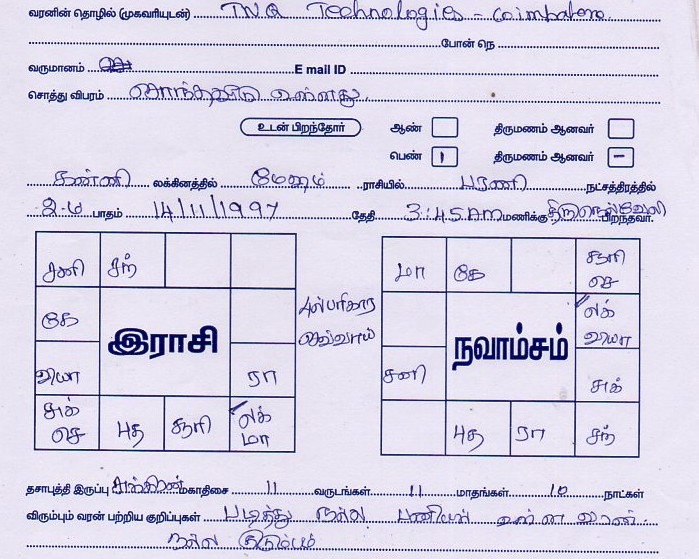 வரனின் தொழில் (முகவரியுடன்) TNQ Technologies - Coimbatore.
போன் நெ
வருமானம் E mail ID
சொத்து விபரம் சொந்தவீடு உள்ளது.
உடன் பிறந்தோர் ஆண் திருமணம் ஆனவர்
பெண் 1 திருமணம் ஆனவர் -
கன்னி லக்கினத்தில் மேஷம் ராசியில் பரணி நட்சத்திரத்தில்
2-ம் பாதம் 14/11/1997 தேதி 3:45 AM மணிக்கு திருநெல்வேலி பிறந்தவர்.
சனி சந்
கே
வியா ரா
சுக் செ புத சூரி லக் மா
இராசி
பரிகார செவ்வாய்
மா கே சூரி செ
லக் வியா
சனி சுக்
புத ரா சந்
நவாம்சம்
தசாபுத்தி இருப்பு சுக்கிரன் மகாதிசை 11 வருடங்கள் 11 மாதங்கள் 10 நாட்கள்
விரும்பும் வரன் பற்றிய குறிப்புகள் படித்து நல்ல பணியில் உள்ள வரன்.
நல்ல குடும்பம்